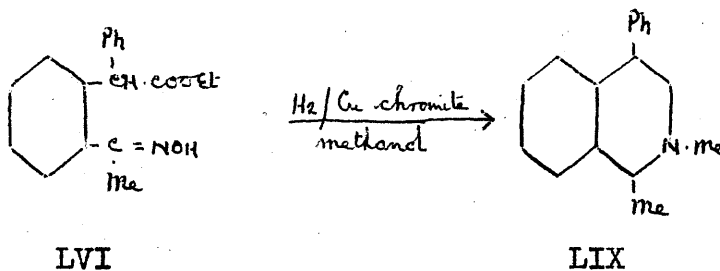 Ph
CH·COOEt
C=NOH
Me
H2/Cu chromite
methanol
Ph
N·Me
Me
LVI
LIX